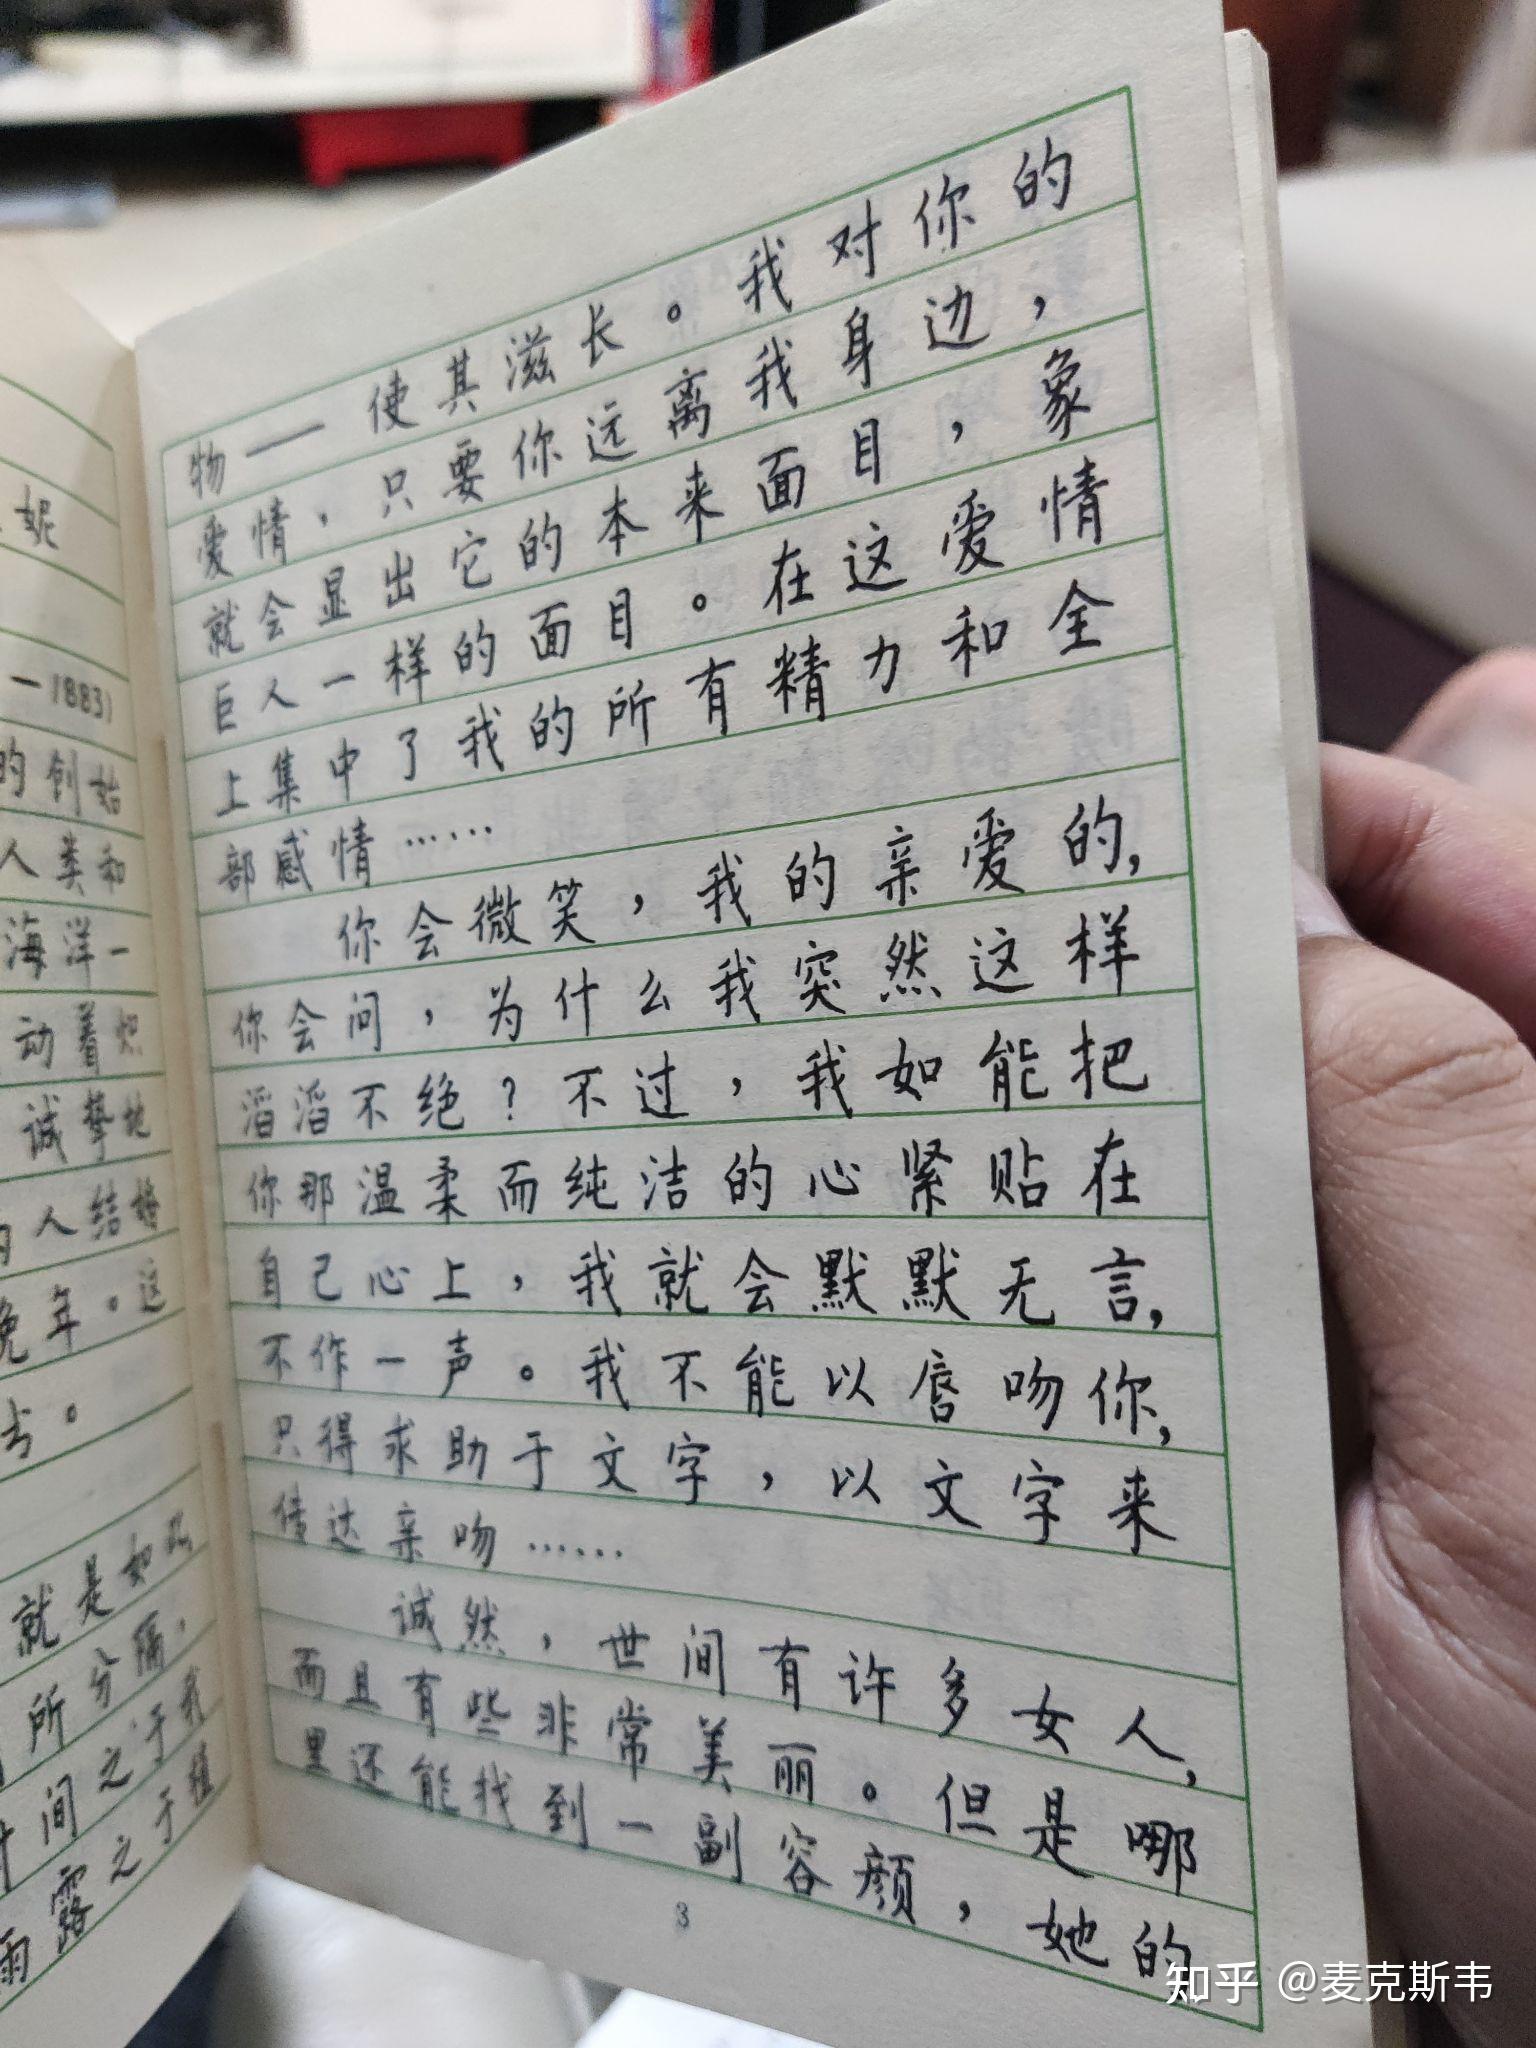 妮
—1883)
的创始
人类和
海洋一
动着炽
诚挚地
人结婚
晚年。这
书。
就是如此
所分隔，
时间之于我
雨露之于植
物——使其滋长。我对你的
爱情，只要你远离我身边，
就会显出它的本来面目，象
巨人一样的面目。在这爱情
上集中了我的所有精力和全
部感情……
你会微笑，我的亲爱的，
你会问，为什么我突然这样
滔滔不绝？不过，我如能把
你那温柔而纯洁的心紧贴在
自己心上，我就会默默无言，
不作一声。我不能以唇吻你，
只得求助于文字，以文字来
传达亲吻……
诚然，世间有许多女人，
而且有些非常美丽。但是哪
里还能找到一副容颜，她的
3
知乎 @麦克斯韦